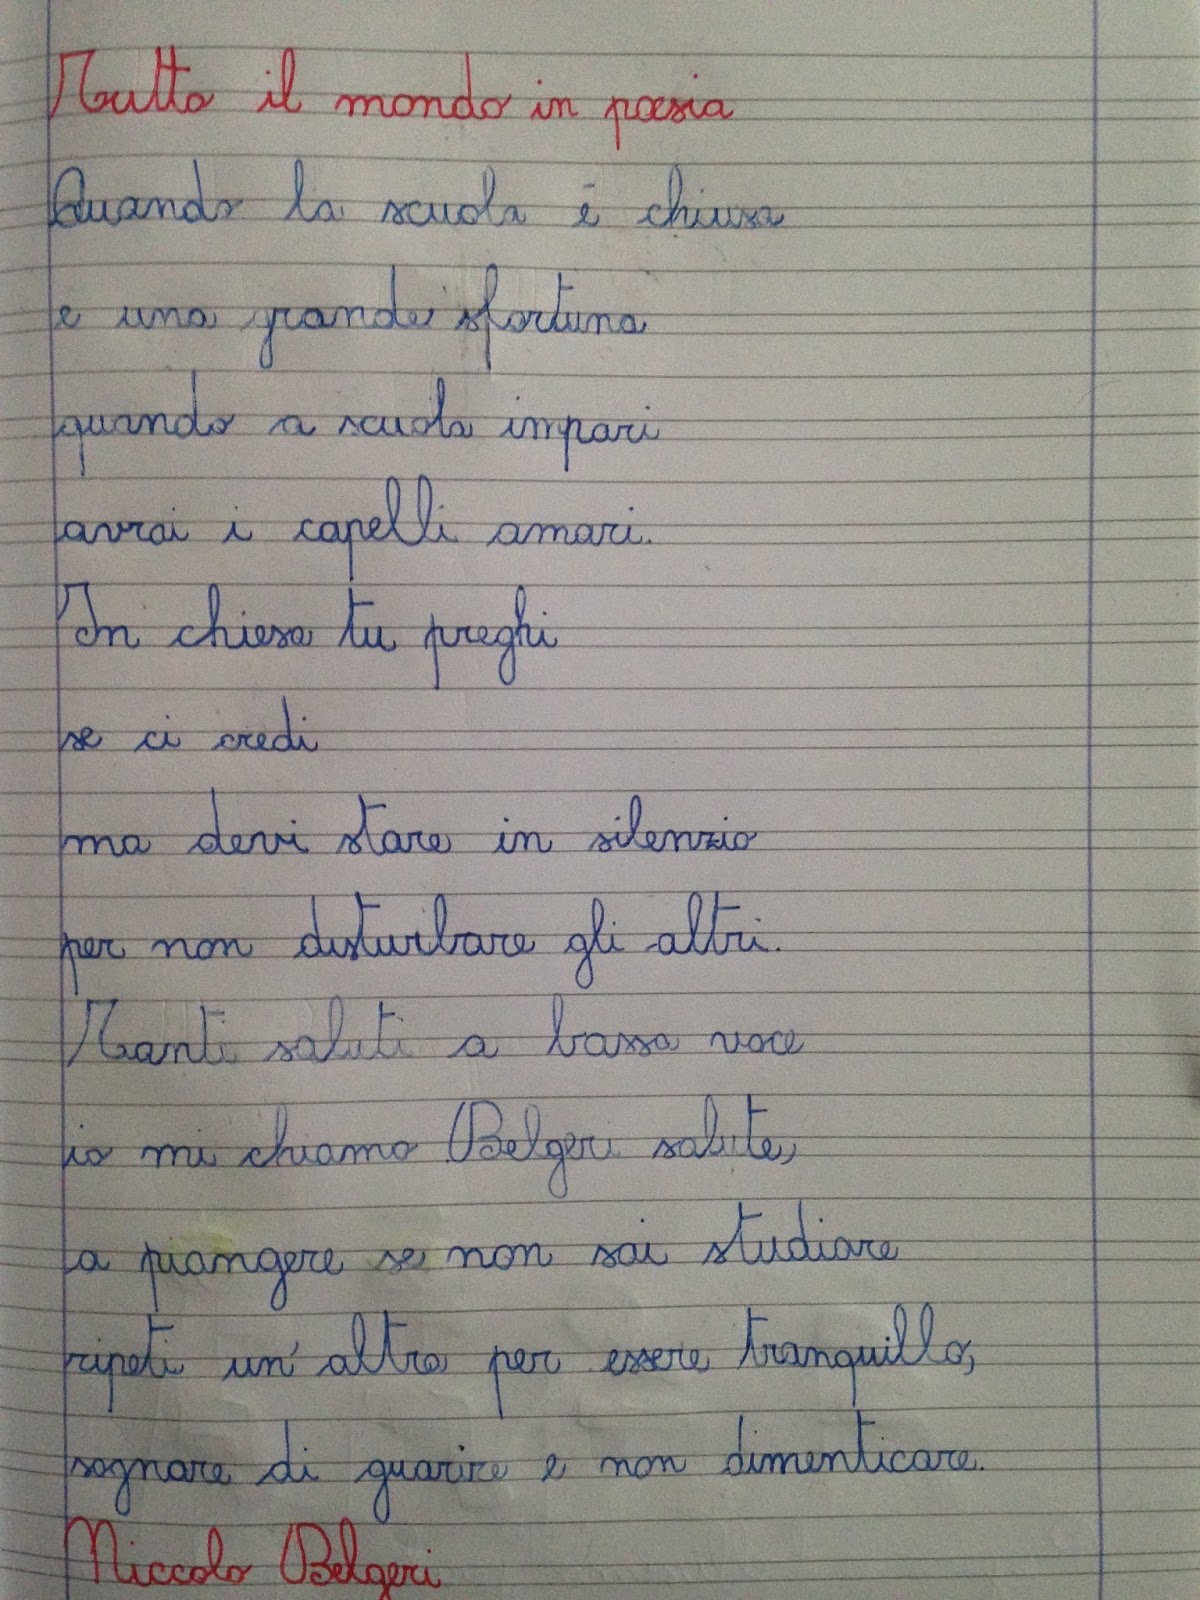 Tutto il mondo in poesia
Quando la scuola è chiusa
e una grande sfortuna
quando a scuola impari
avrai i capelli amari.
In chiesa tu preghi
se ci credi
ma devi stare in silenzio
per non disturbare gli altri.
Tanti saluti a bassa voce
io mi chiamo Belgeri salute,
a piangere se non sai studiare
ripeti un'altra per essere tranquillo,
sognare di guarire e non dimenticare.
Niccolo Belgeri